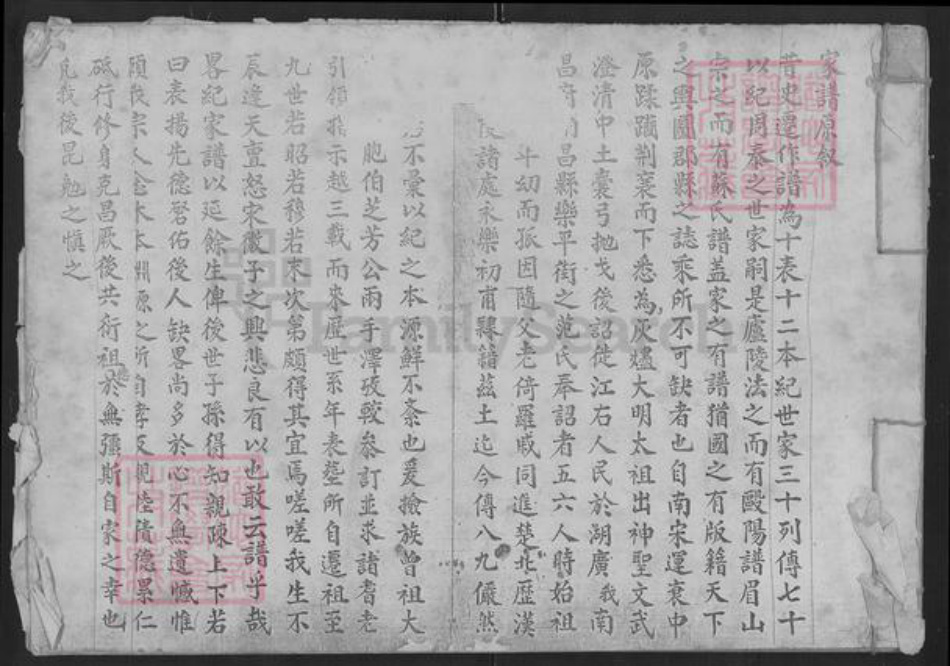 家譜原敘
昔史遷作譜為十表十二本紀世家三十列傳七十
以紀周秦之世家嗣是廬陵法之而有毆陽譜眉山
宗之而有蘇氏譜蓋家之有譜猶國之有版籍天下
之輿圖郡縣之誌乘所不可缺者也自南宋運衰中
原蹂躪荆襄而下悉為灰燼大明太祖出神聖文武
澄清中土囊弓拋戈後詔徙江右人民於湖廣我南
昌府 昌縣樂平街之范氏奉詔者五六人時始祖
斗幼而孤因隨父老倚羅戚同進楚北歷漢
諸處永樂初甫隸籍茲土迄今傳八九儼然
不彙以紀之本源鮮不紊也爰撿族曾祖大
胞伯芝芳公兩手澤攷戰叅訂並求諸耆老
引領指示越三載而來歷世系年表塟所自遷祖至
九世若昭若穆若末次第頗得其宜焉嗟嗟我生不
辰逢天亶怒宋微子之興悲良有以也敢云譜乎哉
畧紀家譜以延餘生俾後世子孫得知親疎上下若
曰表揚先德啓佑後人缺畧尚多於心不無遺憾惟
願我宗人念木本淵源之所自孝友親睦積德累仁
砥行修身克昌厥後共衍祖於無彊斯自家之幸也
凡我後昆勉之慎之
FamilySearch